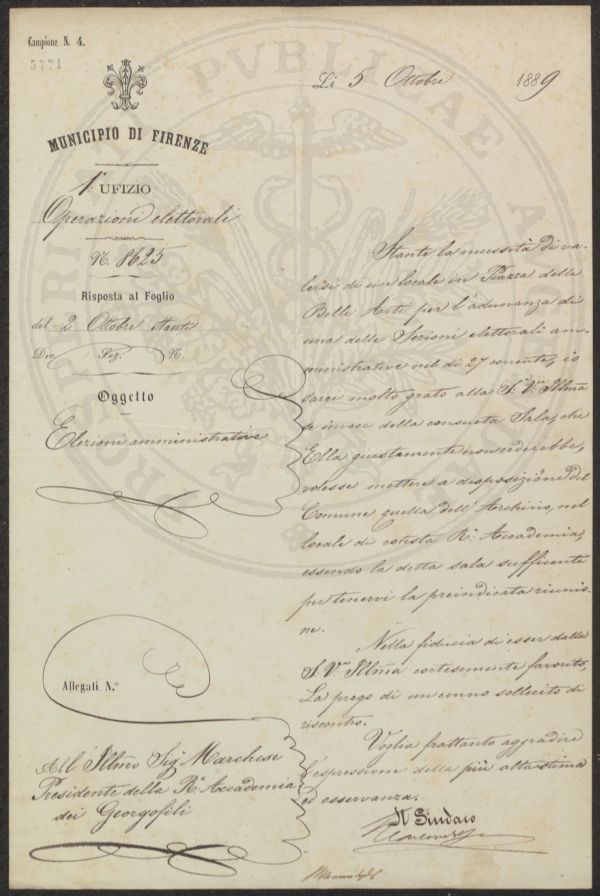 Campione N. 4.
5771
MUNICIPIO DI FIRENZE
1° UFIZIO
Operazioni elettorali
N. 8625
Risposta al Foglio
del 2 Ottobre stante
Div. Sez. N.
Oggetto
Elezioni amministrative
Allegati N.°
All' Illmo Sig. Marchese
Presidente della R.a Accademia
dei Georgofili
Li 5 Ottobre 1889
Stante la necessità di va-
lersi di un locale in Piazza delle
Belle Arti per l'adunanza di
una delle Sezioni elettorali am-
ministrative nel dì 27 corrente, io
sarei molto grato alla S. V. Illma
se invece della consueta Sala, che
Ella giustamente non cederebbe,
volesse mettere a disposizione del
Comune quella dell'Archivio, nel
locale di cotesta R. Accademia,
essendo la detta sala sufficente
per tenervi la preindicata riunio-
ne.
Nella fiducia di esser dalla
S. V.a Illma cortesemente favorito,
La prego di un cenno sollecito di
riscontro.
Voglia frattanto aggradire
l'espressione della più alta stima
ed osservanza.
Il Sindaco